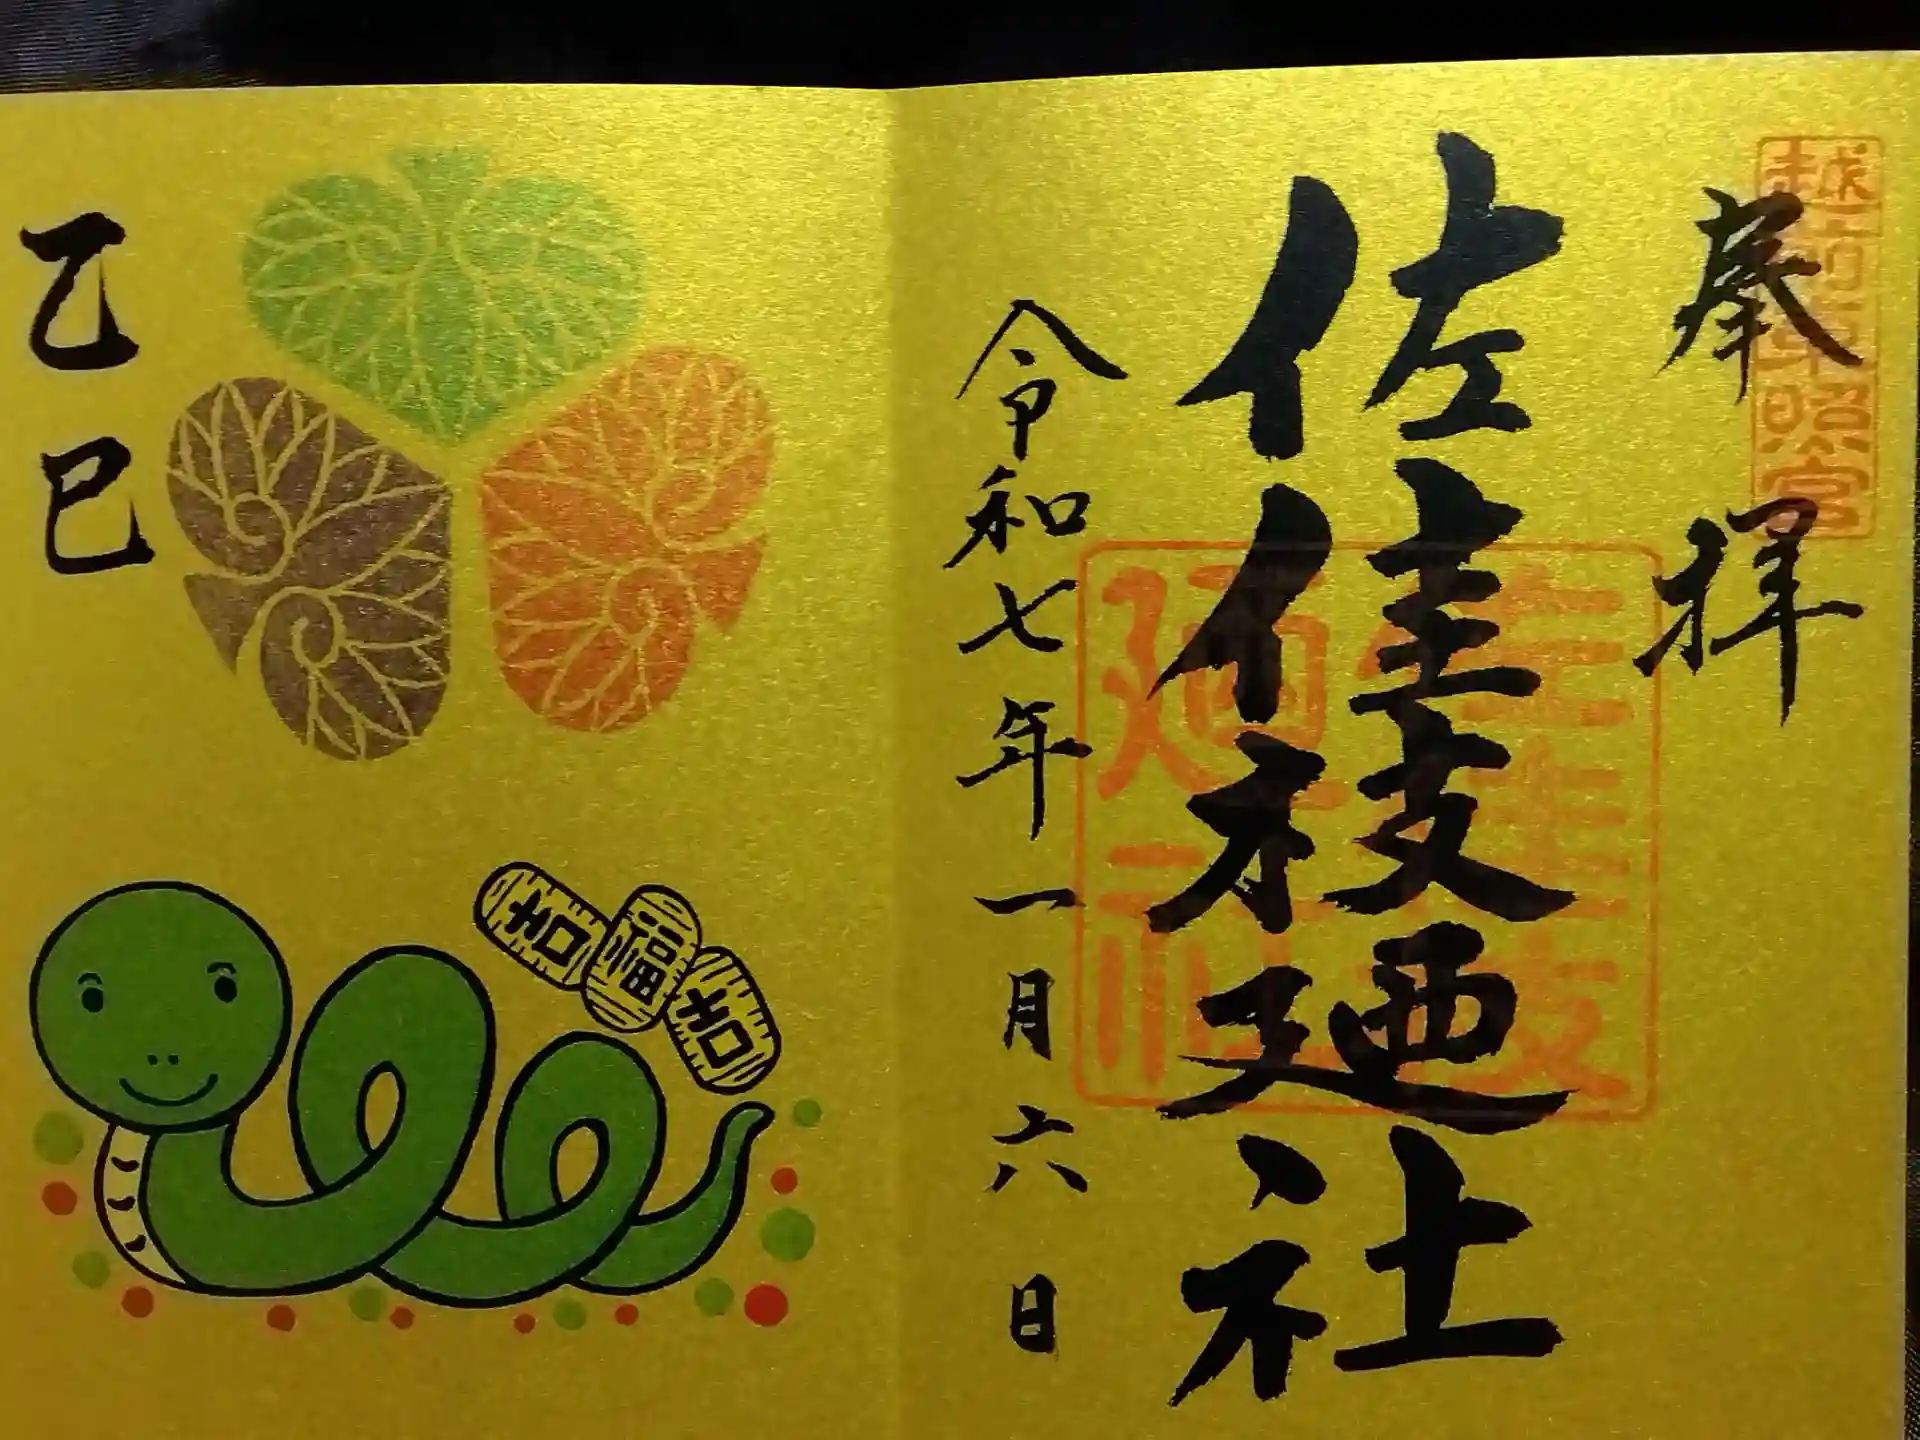 奉拝
越前東照宮
佐佳枝廼社
佐佳枝廼社
令和七年一月六日
乙巳
吉
福
吉